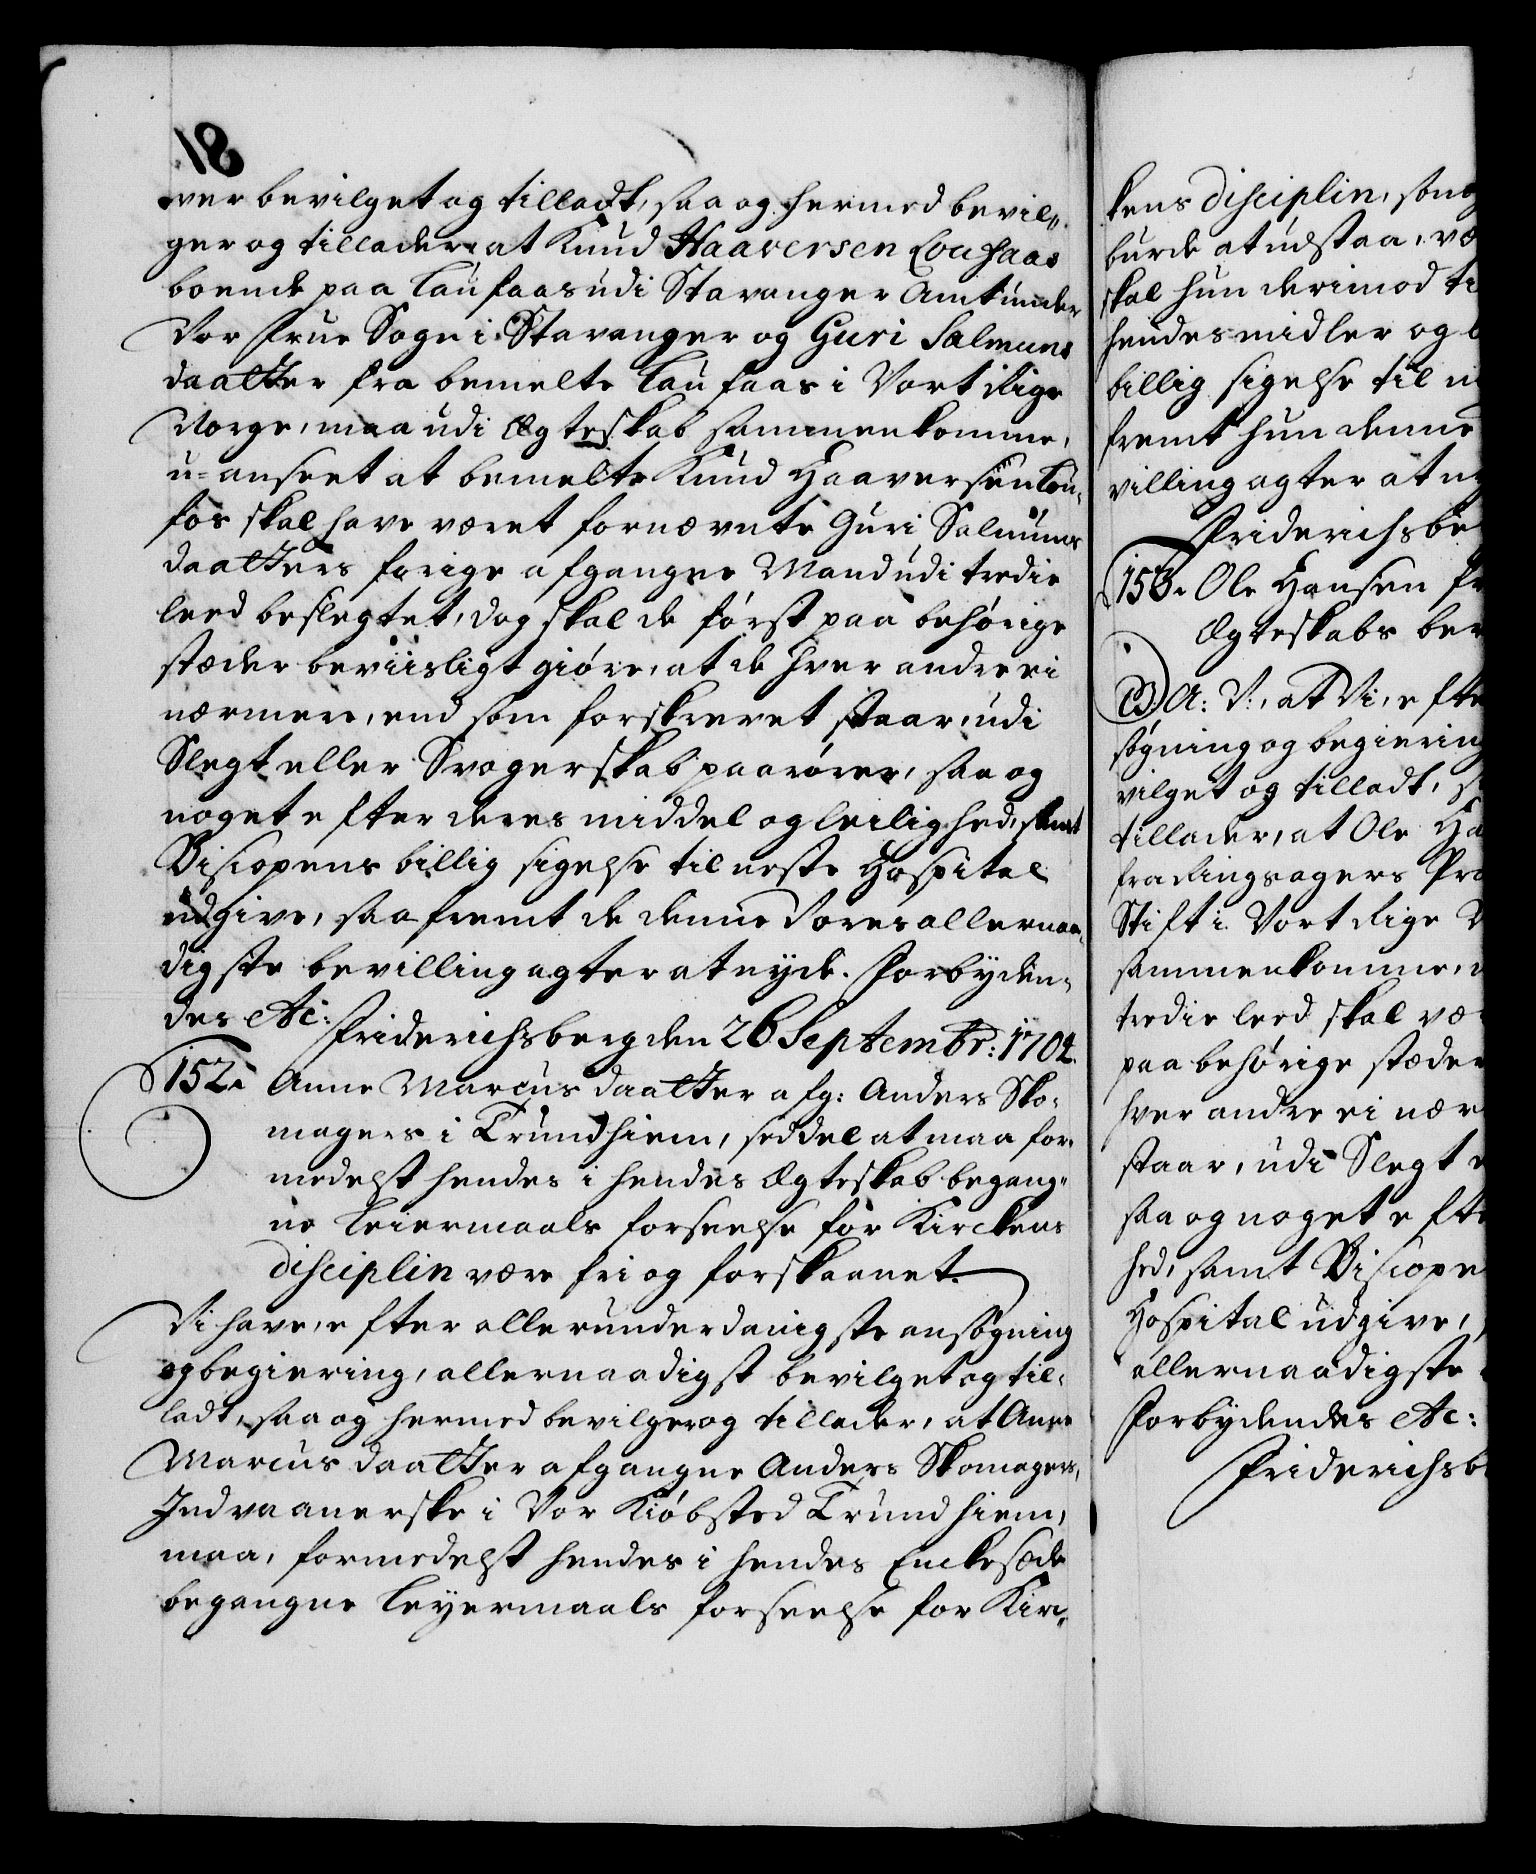 81
ver bevilget og tilladt, saa og hermed bevil„
ger og tillader, at Knud Haaversen Loufaas
boende paa Laufaas udi Stavanger Amt under
Vor Frue Sogn i Stavanger og Guri Salmuns
daatter fra bemelte Laufaas i Vort Rige
Norge, maa udi Ægteskab sammenkomme,
u-anseet at bemelte Knud Haaversen Lou„
fos skal have været fornævnte Guri Salmuns
daatters forige afgangne Mand udi tredie
leed beslegtet, dog skal de først paa behørige
stæder beviisligt giøre, at de hver andre ei
nærmere, end som forskrevet staar, udi
Slegt eller Svogerskab paarører, saa og
noget efter deres middel og leilighed, samt
Biscopens billig sigelse til neste Hospital
udgive, saafremt de denne Vores allernaa„
digste bevilling agter at nyde. Forbyden„
des etc: Friderichsberg den 26 Septembr: 1702.
152. Anne Marcus daatter afg: Anders Sko„
magers i Trundhiem, seddel at maa for„
medelst hendes i hendes Ægteskab begang„
ne Leiermaals forseelse for Kirckens
disciplin være fri og forskaanet.
Vi have, efter allerunderdanigste ansøgning
og begiering, allernaadigst bevilget og til„
ladt, saa og hermed bevilger og tillader, at Anne
Marcus daatter afgangne Anders Skomagers,
Indvaanerske i Vor Kiøbsted Trundhiem,
maa, formedelst hendes i hendes Enckesæde
begangne Leyermaals forseelse for Kirc„
kens disciplin, som
burde at udstaa, væ
skal hun derimod ti
hendes midler og
billig sigelse til
fremt hun denne
villing agter at
Friderichsbe
153. Ole Hansen fr
Ægteskabs bev
C5 A: V:, at Vi, efte
søgning og begiering
vilget og tilladt,
tillader, at Ole Ha
fra Ringsagers Pr
Stift i Vort Rige
sammenkomme,
tredie leed skal væ
paa behørige stæder
hver andre ei nær
staar, udi Slegt
saa og noget efte
hed, samt Biscope
Hospital udgive,
allernaadigste
Forbydendes etc:
Friderichsb